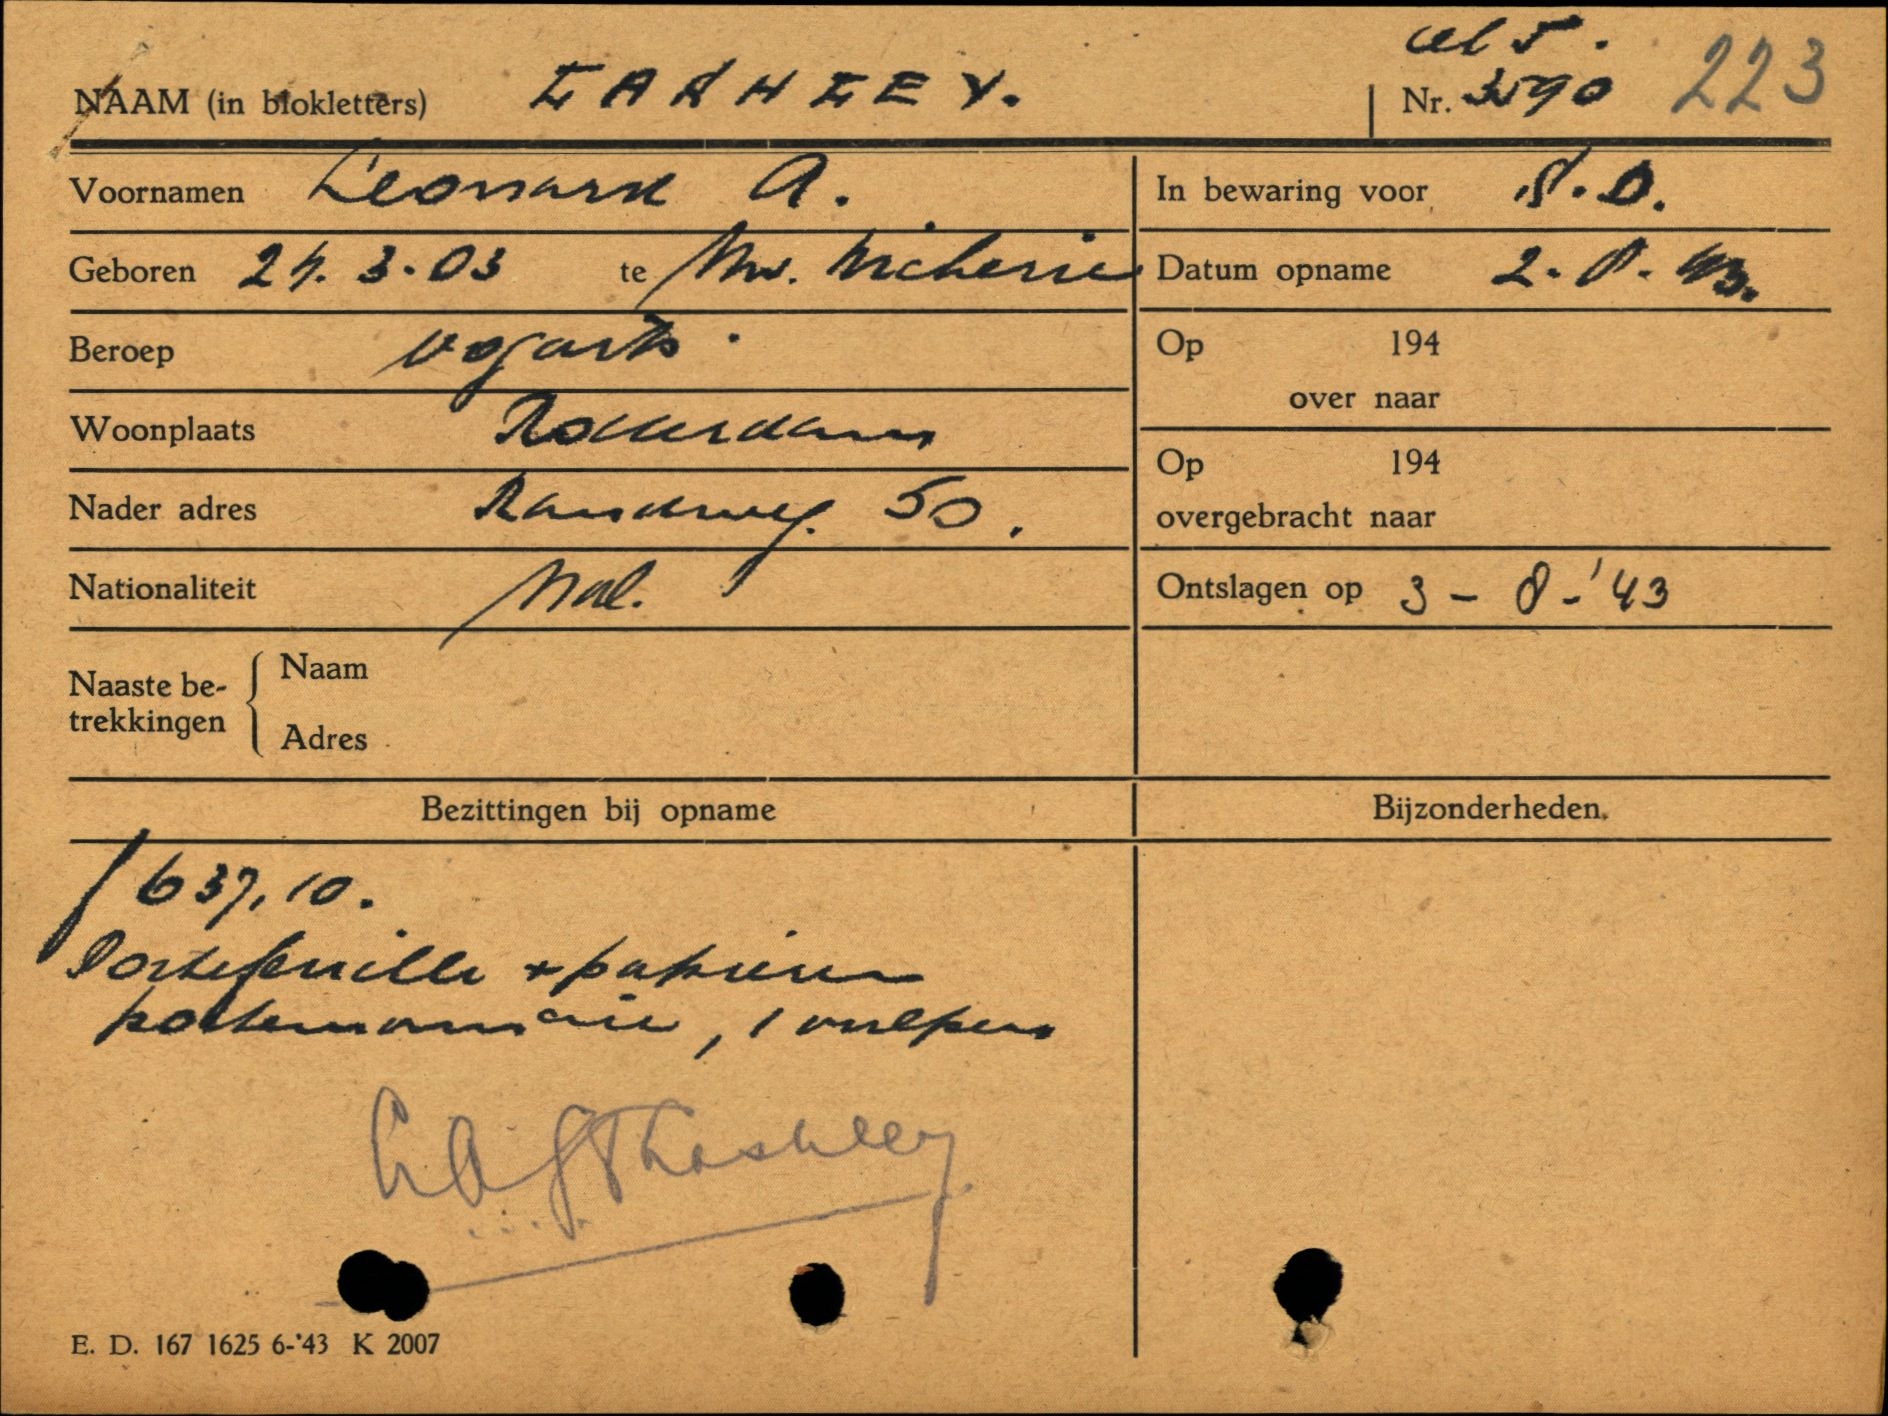 cel 5.
NAAM (in blokletters) LASHLEY. Nr. 3590 223
Voornamen Leonard A. In bewaring voor S.D.
Geboren 24.3.03 te Nw. Nickerie Datum opname 2-8-43.
Beroep oogarts. Op 194
over naar
Woonplaats Rotterdam
Op 194
Nader adres Randweg. 50. overgebracht naar
Nationaliteit Ned. Ontslagen op 3-8-'43
Naaste be-
trekkingen
Naam
Adres
Bezittingen bij opname Bijzonderheden.
f 637,10.
Portefeuille + papieren
portemonnaie, 1 vulpen
Lashley
E. D. 167 1625 6-'43 K 2007